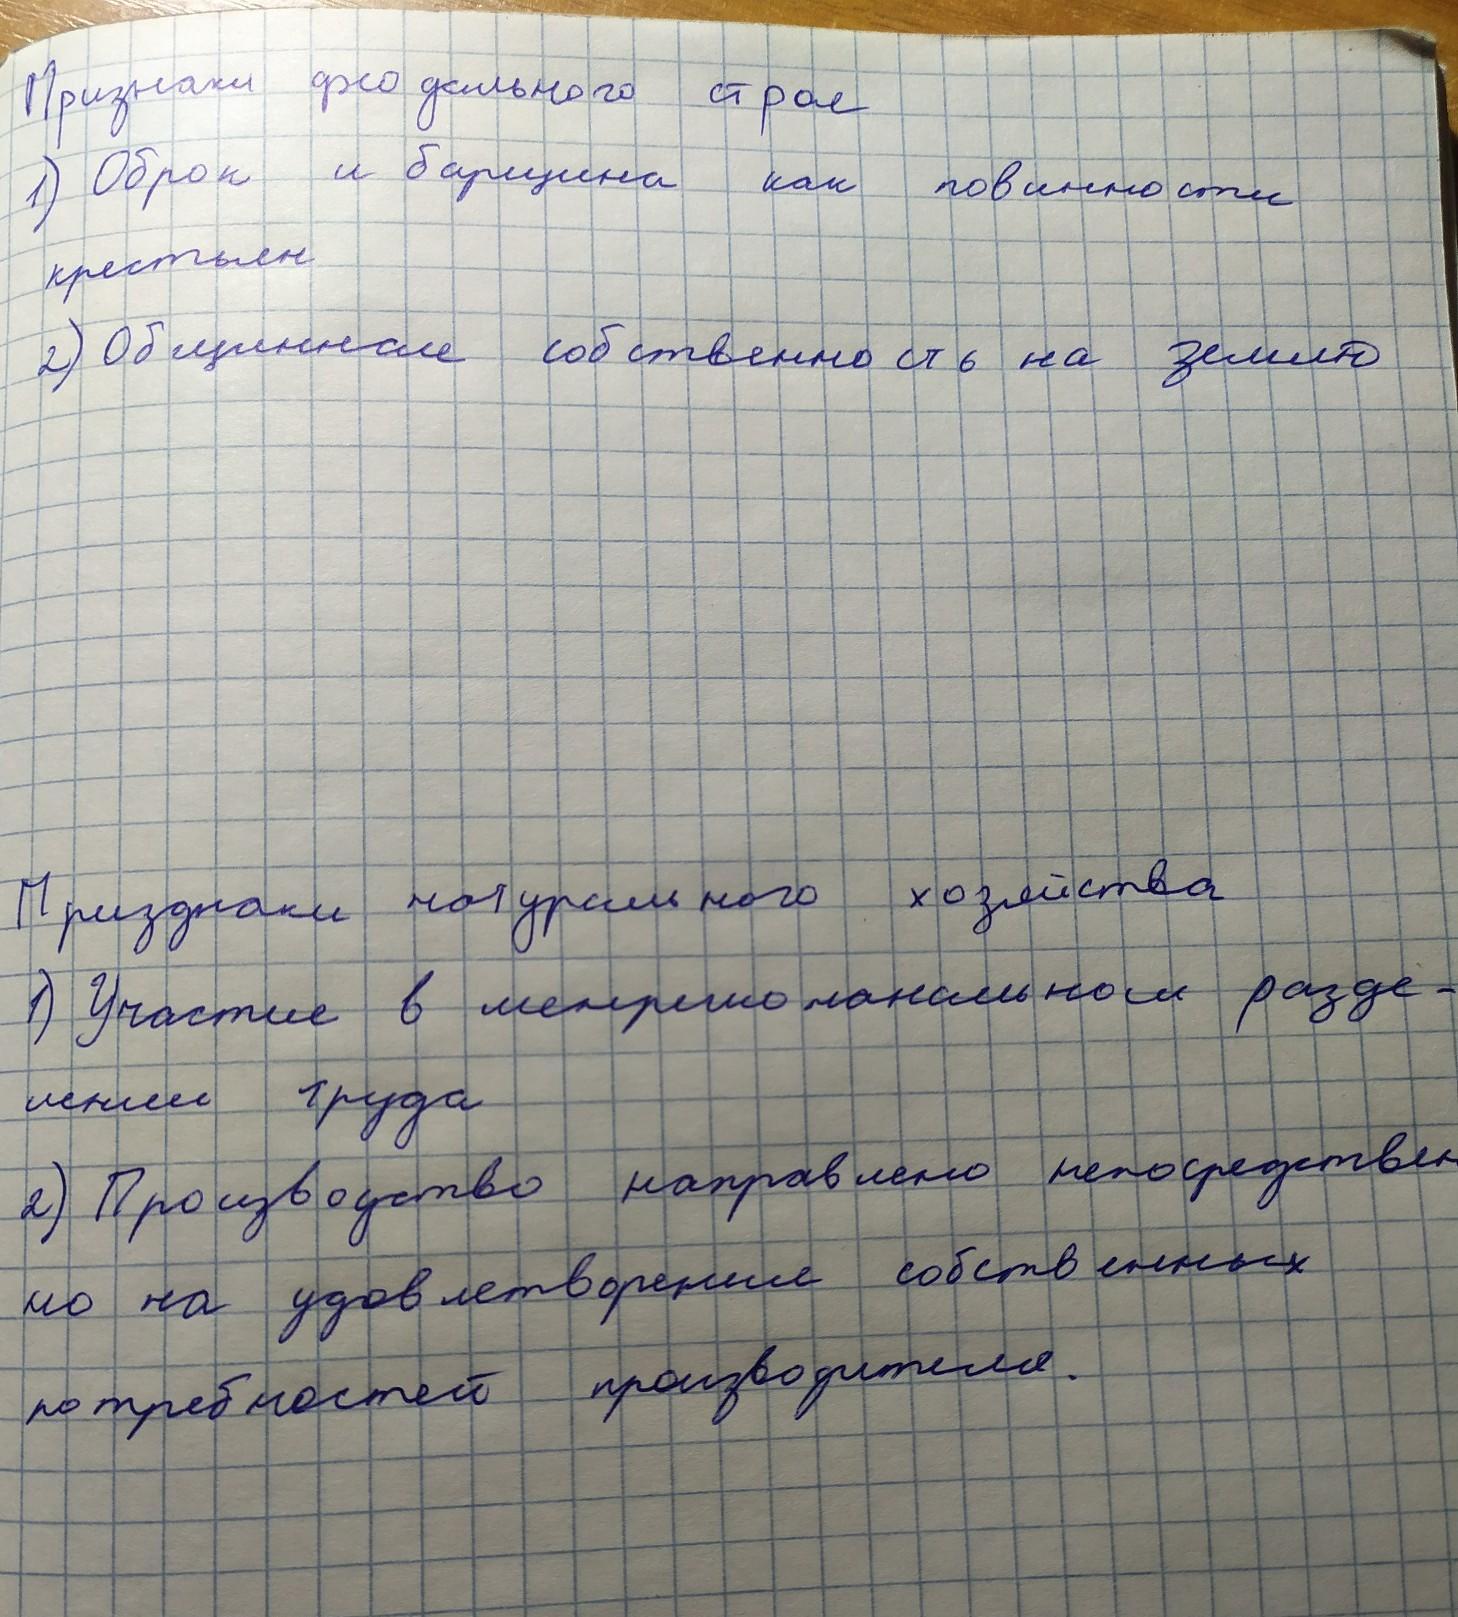 Признаки феодального строя
1) Оброк и барщина как повинности
крестьян
2) Общинная собственность на землю
Признаки натурального хозяйства
1) Участие в межрегиональном разде-
лении труда
2) Производство направлено непосредствен
но на удовлетворение собственных
потребностей производителя.